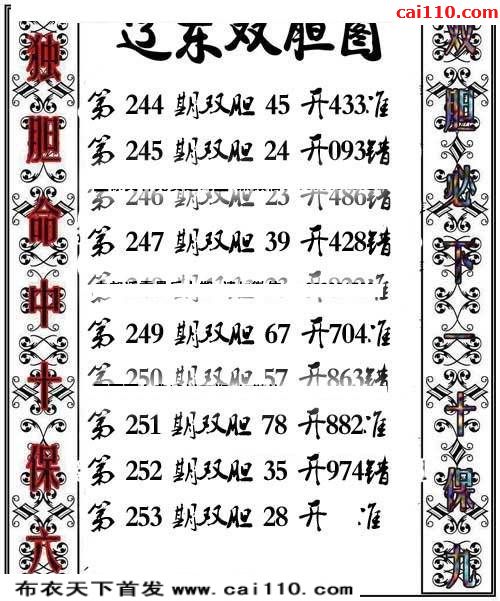 cai110.com
辽东双胆图
独胆命中十保六
第 244 期双胆 45 开433准
第 245 期双胆 24 开093错
第 246 期双胆 23 开486错
第 247 期双胆 39 开428错
第 249 期双胆 67 开704准
第 250 期双胆 57 开863错
第 251 期双胆 78 开882准
第 252 期双胆 35 开974错
第 253 期双胆 28 开 准
双胆必下一十保九
布衣天下首发 www.cai110.com